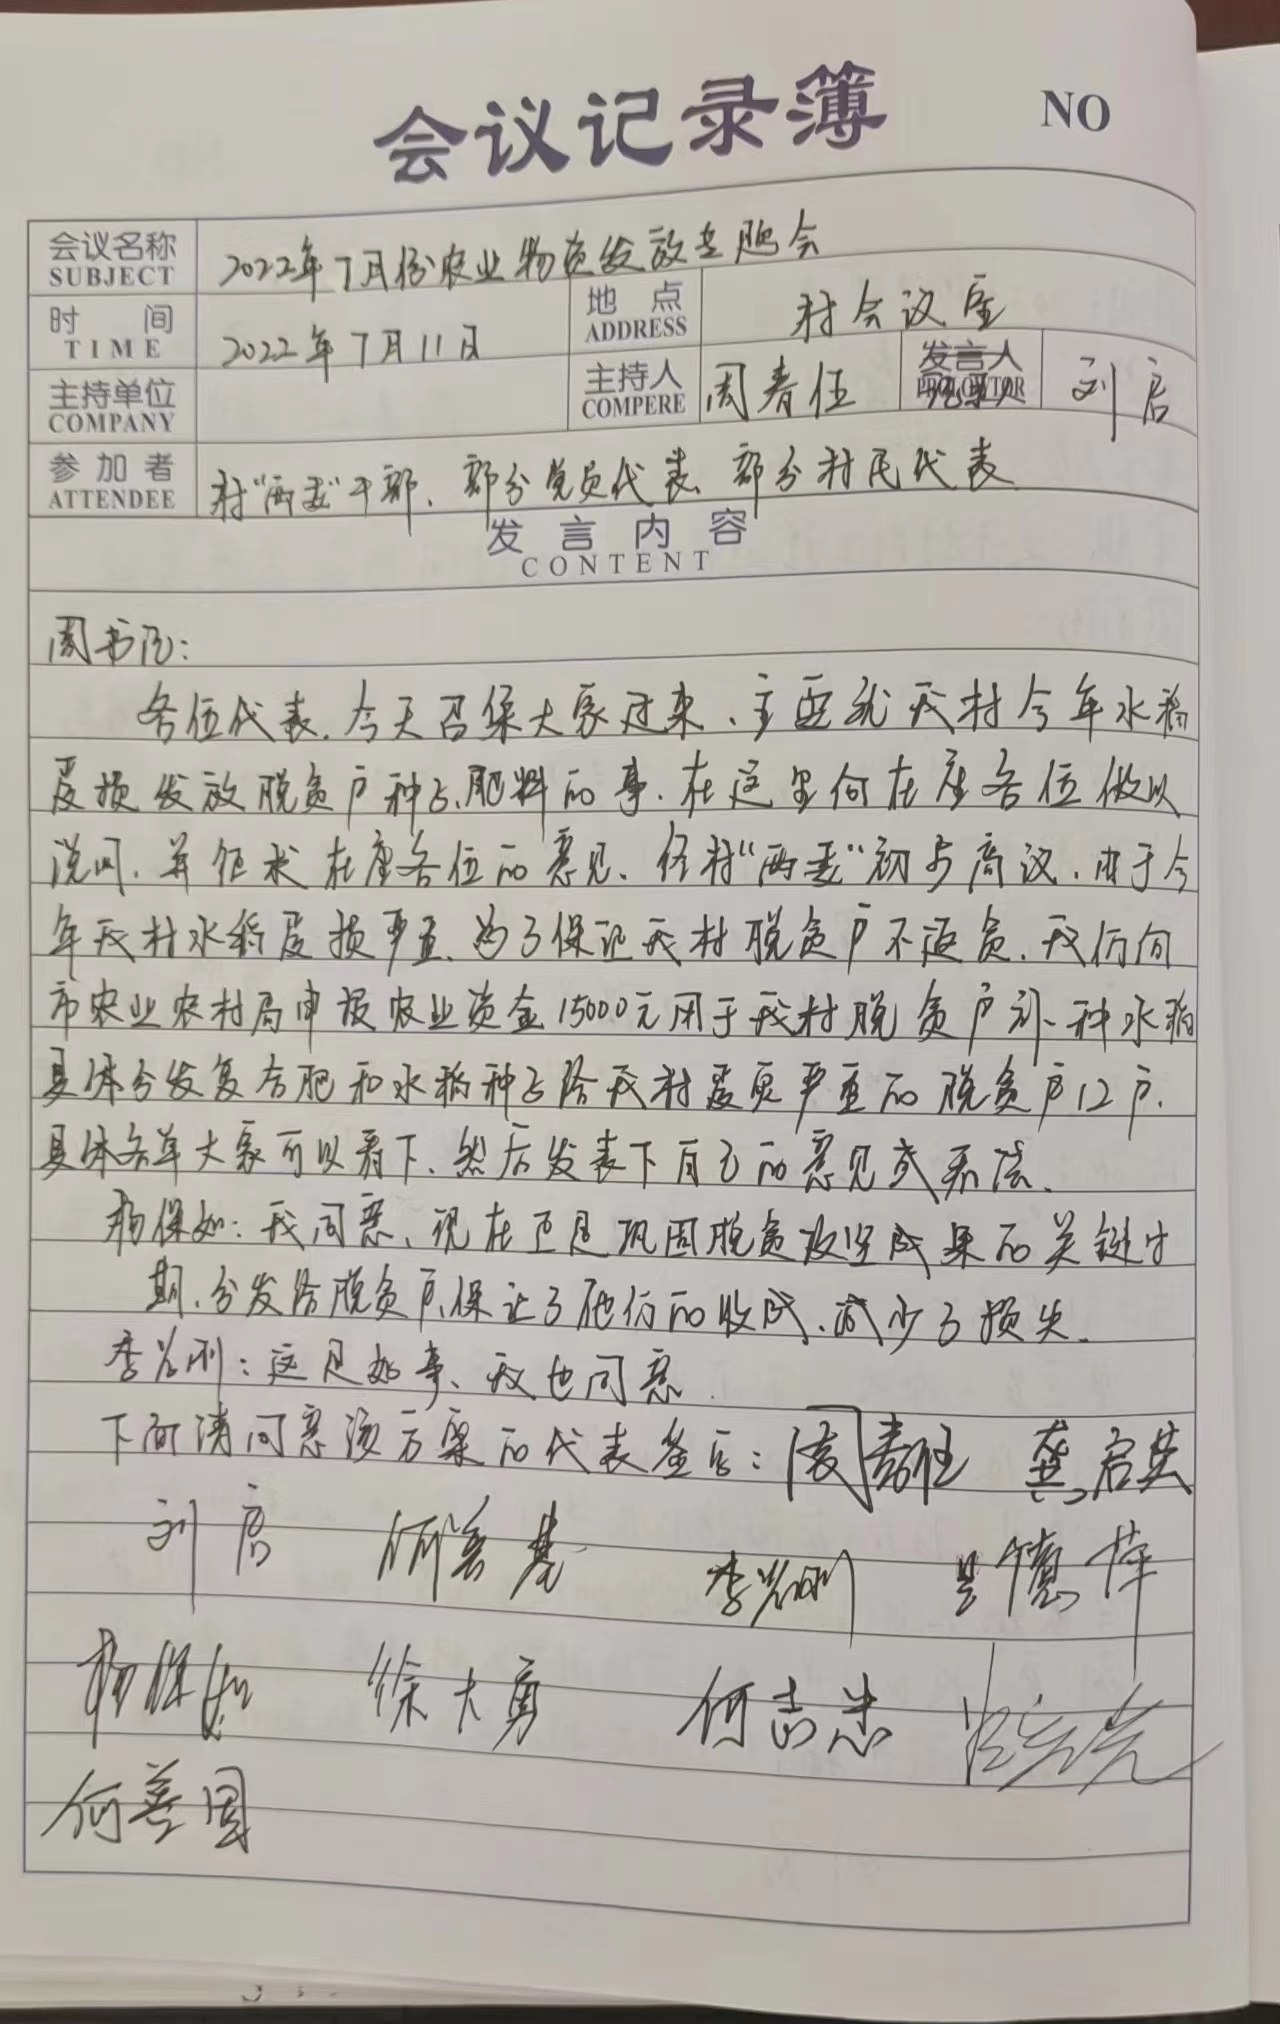 会议记录簿 NO
会议名称 2022年7月份农业物资发放专题会
SUBJECT
时间 2022年7月11日 地点 村会议室
TIME ADDRESS
主持单位 主持人 周春伍 发言人 刘启
COMPANY COMPERE 记录员
参加者 村“两委”干部、部分党员代表、部分村民代表
ATTENDEE
发言内容
CONTENT
周书记：
各位代表，今天召集大家过来，主要就我村今年水稻
受损发放脱贫户种子、肥料的事，在这里向在座各位做以
说明，并征求在座各位的意见。经村“两委”初步商议，由于今
年我村水稻受损严重，为了保证我村脱贫户不返贫，我们向
市农业农村局申报农业资金15000元用于我村脱贫户补种水稻
具体分发复合肥和水稻种子给我村受灾严重的脱贫户12户，
具体名单大家可以看下，然后发表下自己的意见或看法。
杨保如：我同意，现在正是巩固脱贫攻坚成果的关键时
期，分发给脱贫户，保证了他们的收成，减少了损失。
李光刚：这是好事、我也同意。
下面请同意该方案的代表签字：周春伍 龚启英
刘启 何善基 李光刚 吴德萍
杨保如 徐大勇 何志忠
何善国